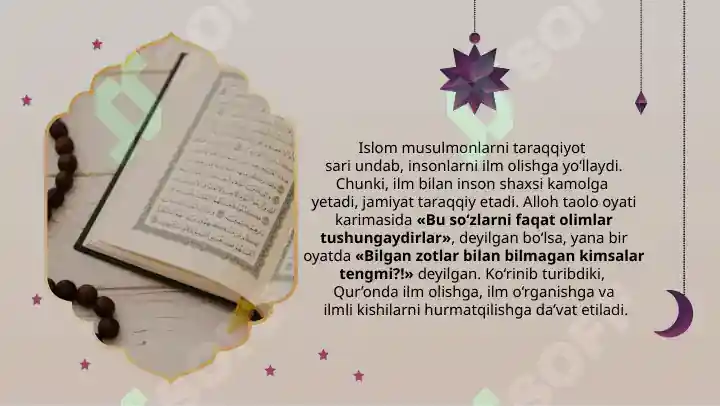 Islom musulmonlarni taraqqiyot
sari undab, insonlarni ilm olishga yoʻllaydi.
Chunki, ilm bilan inson shaxsi kamolga
yetadi, jamiyat taraqqiy etadi. Alloh taolo oyati
karimasida «Bu soʻzlarni faqat olimlar
tushungaydirlar», deyilgan boʻlsa, yana bir
oyatda «Bilgan zotlar bilan bilmagan kimsalar
tengmi?!» deyilgan. Koʻrinib turibdiki,
Qurʼonda ilm olishga, ilm oʻrganishga va
ilmli kishilarni hurmatqilishga daʼvat etiladi.
SOFF
SOFF
SOFF
SOFF